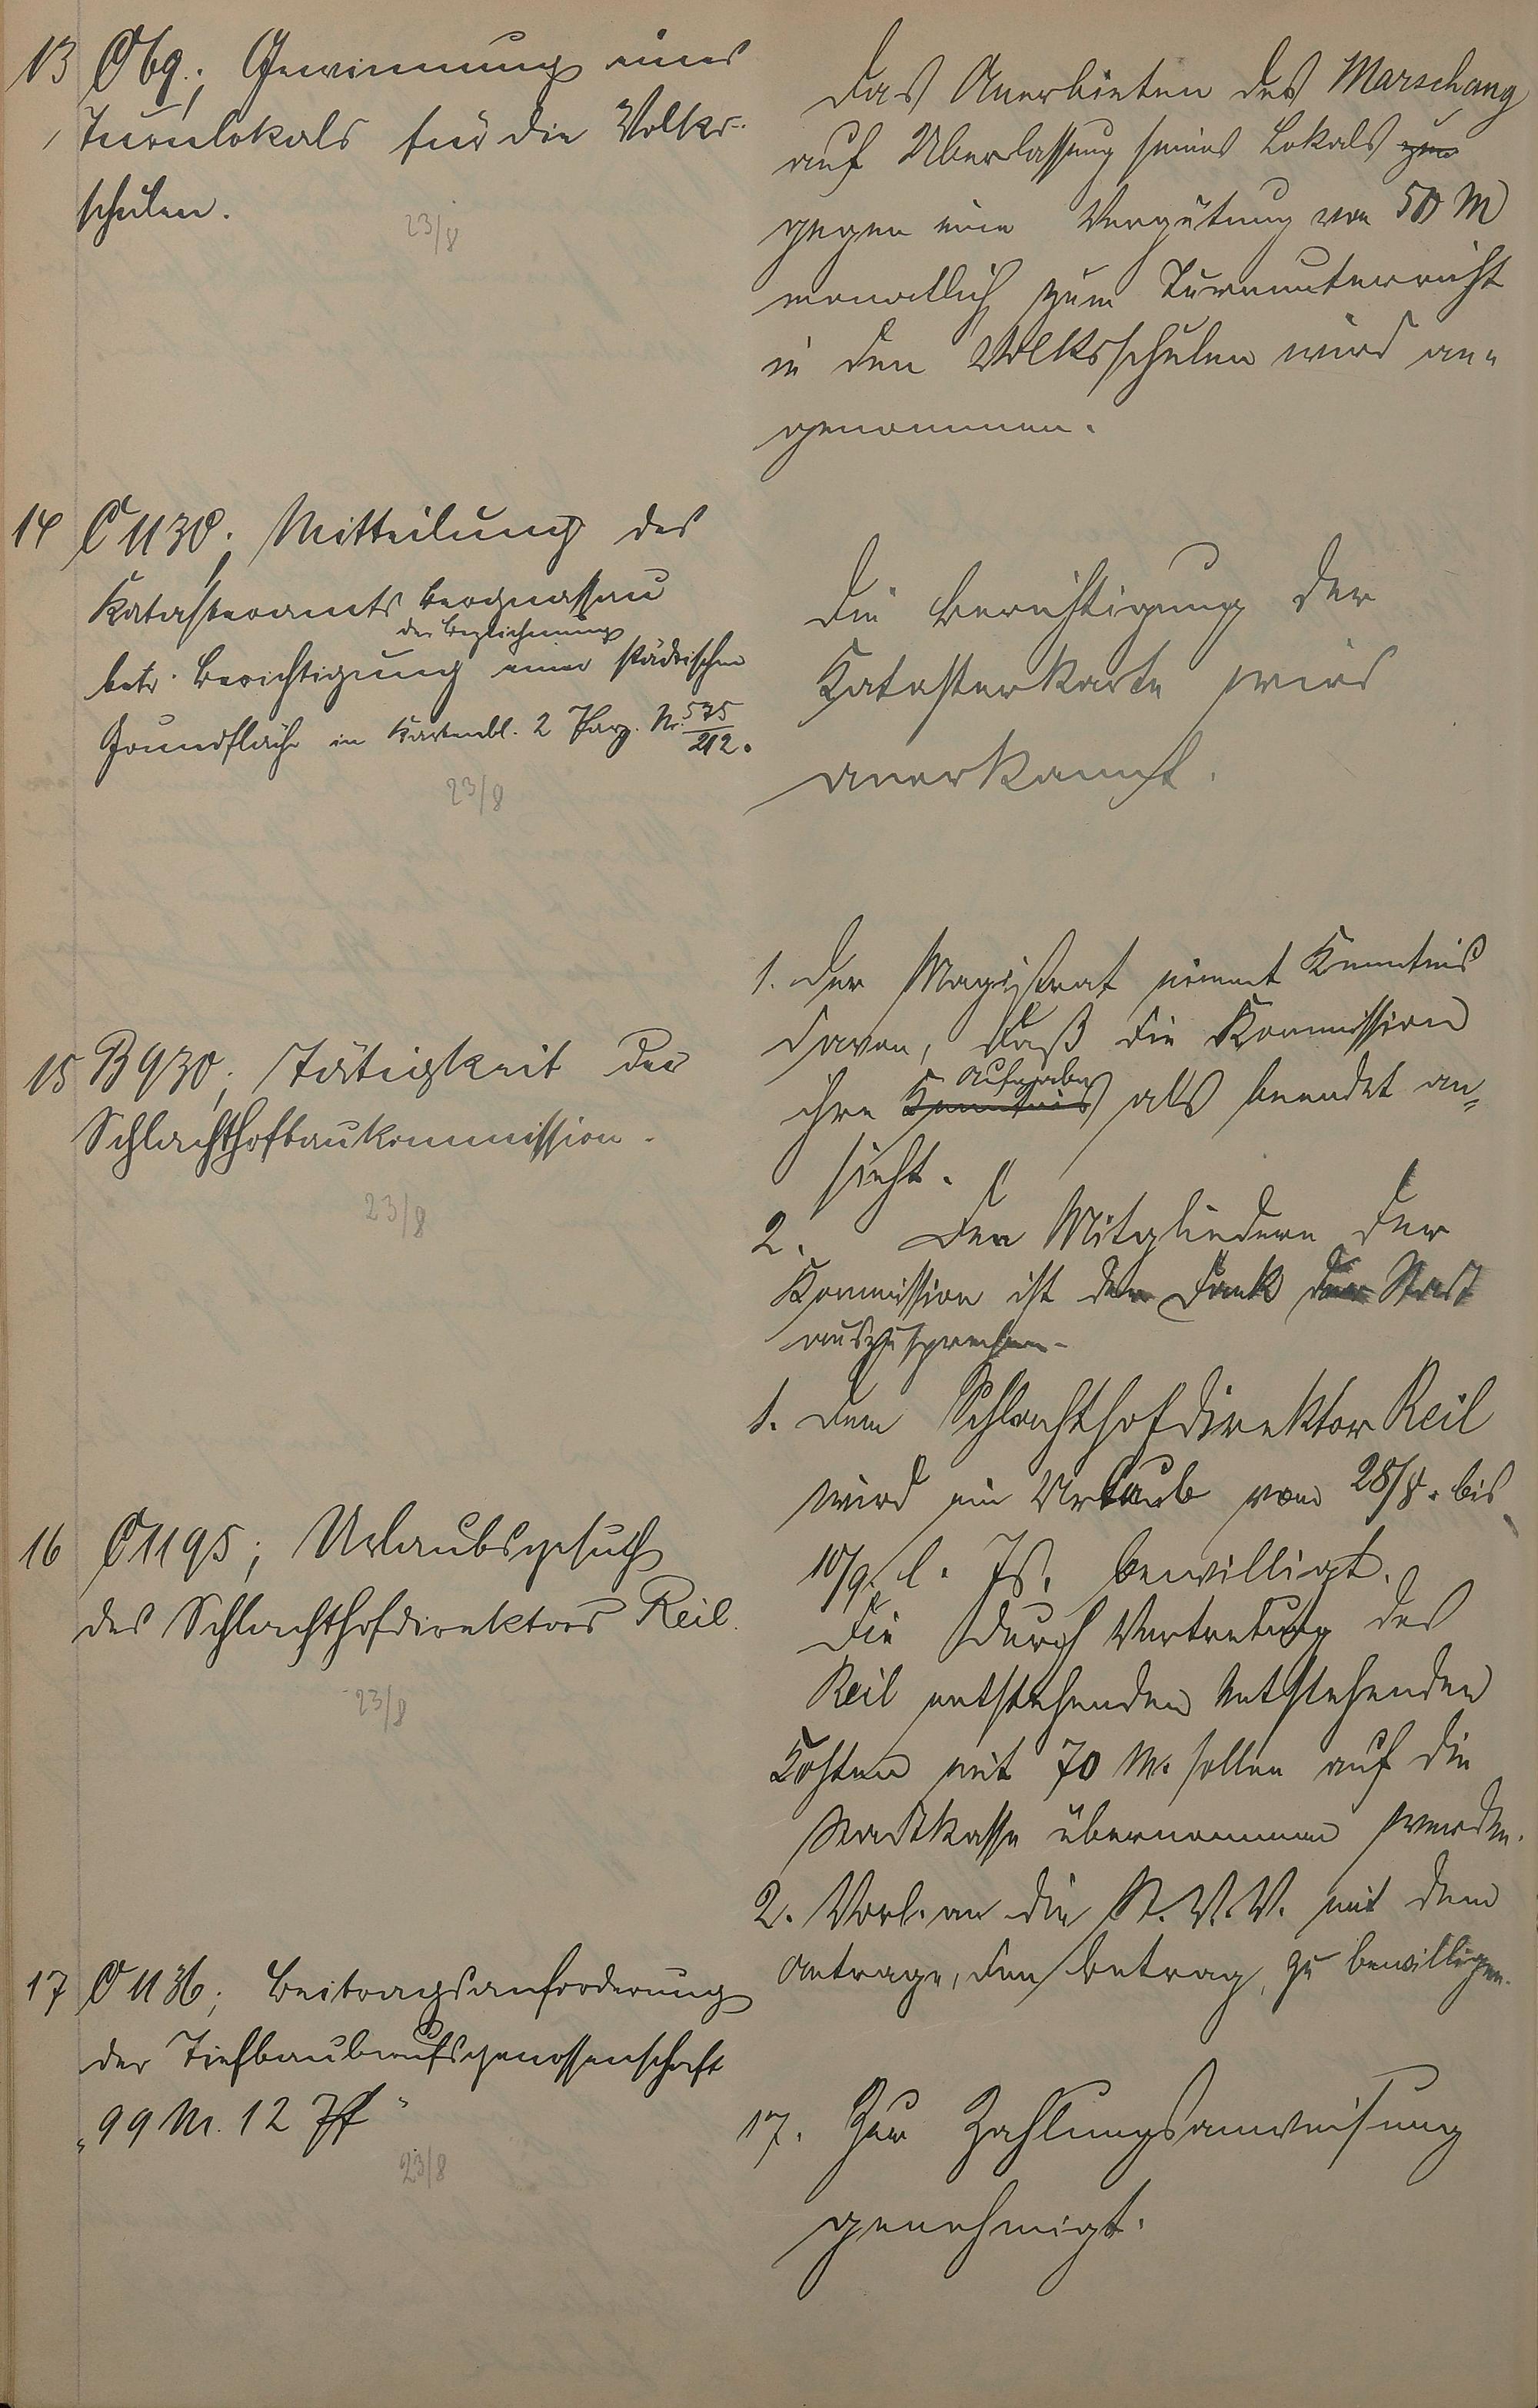 13 C 69; Gewinnung eines
Turnlokals für die Volks-
schulen.
23/8
Das Anerbieten des Marschang
auf Überlassung seines Lokals zum
gegen eine Vergütung von 50 M
monatlich zum Turnunterricht
in den Volksschulen wird an-
genommen.
14 C 1130; Mitteilung des
Katasteramts Bergnassau
der Bezeichnung
betr. Berichtigung einer städtischen
Grundfläche in Kartenbl. 2 Parz. Nr. 535/212.
23/8
Die Berichtigung der
Katasterkarte wird
anerkannt.
15 B 930; Tätigkeit der
Schlachthofbaukommission.
23/8
1. Der Magistrat nimmt Kenntnis
davon, daß die Kommission
Aufgabe
ihre Kenntnis als beendet an-
sieht.
2. Den Mitgliedern der
Kommission ist der Dank der Stadt
auszusprechen.
16 C 1195; Urlaubsgesuch
des Schlachthofdirektors Reil.
23/8
1. Dem Schlachthofdirektor Reil
wird ein Urlaub vom 28/8. bis
10/9. l. Js. bewilligt.
Die durch Vertretung des
Reil entstehenden entstehenden
Kosten mit 70 M. sollen auf die
Stadtkasse übernommen werden.
2. Vorl. an die St. V. V. mit dem
Antrage, den Betrag, zu bewilligen.
17 C 1136; Beitragsanforderung
der Tiefbauberufsgenossenschaft
"99 M. 12 Pf"
23/8
17. Zur Zahlungsanweisung
genehmigt.